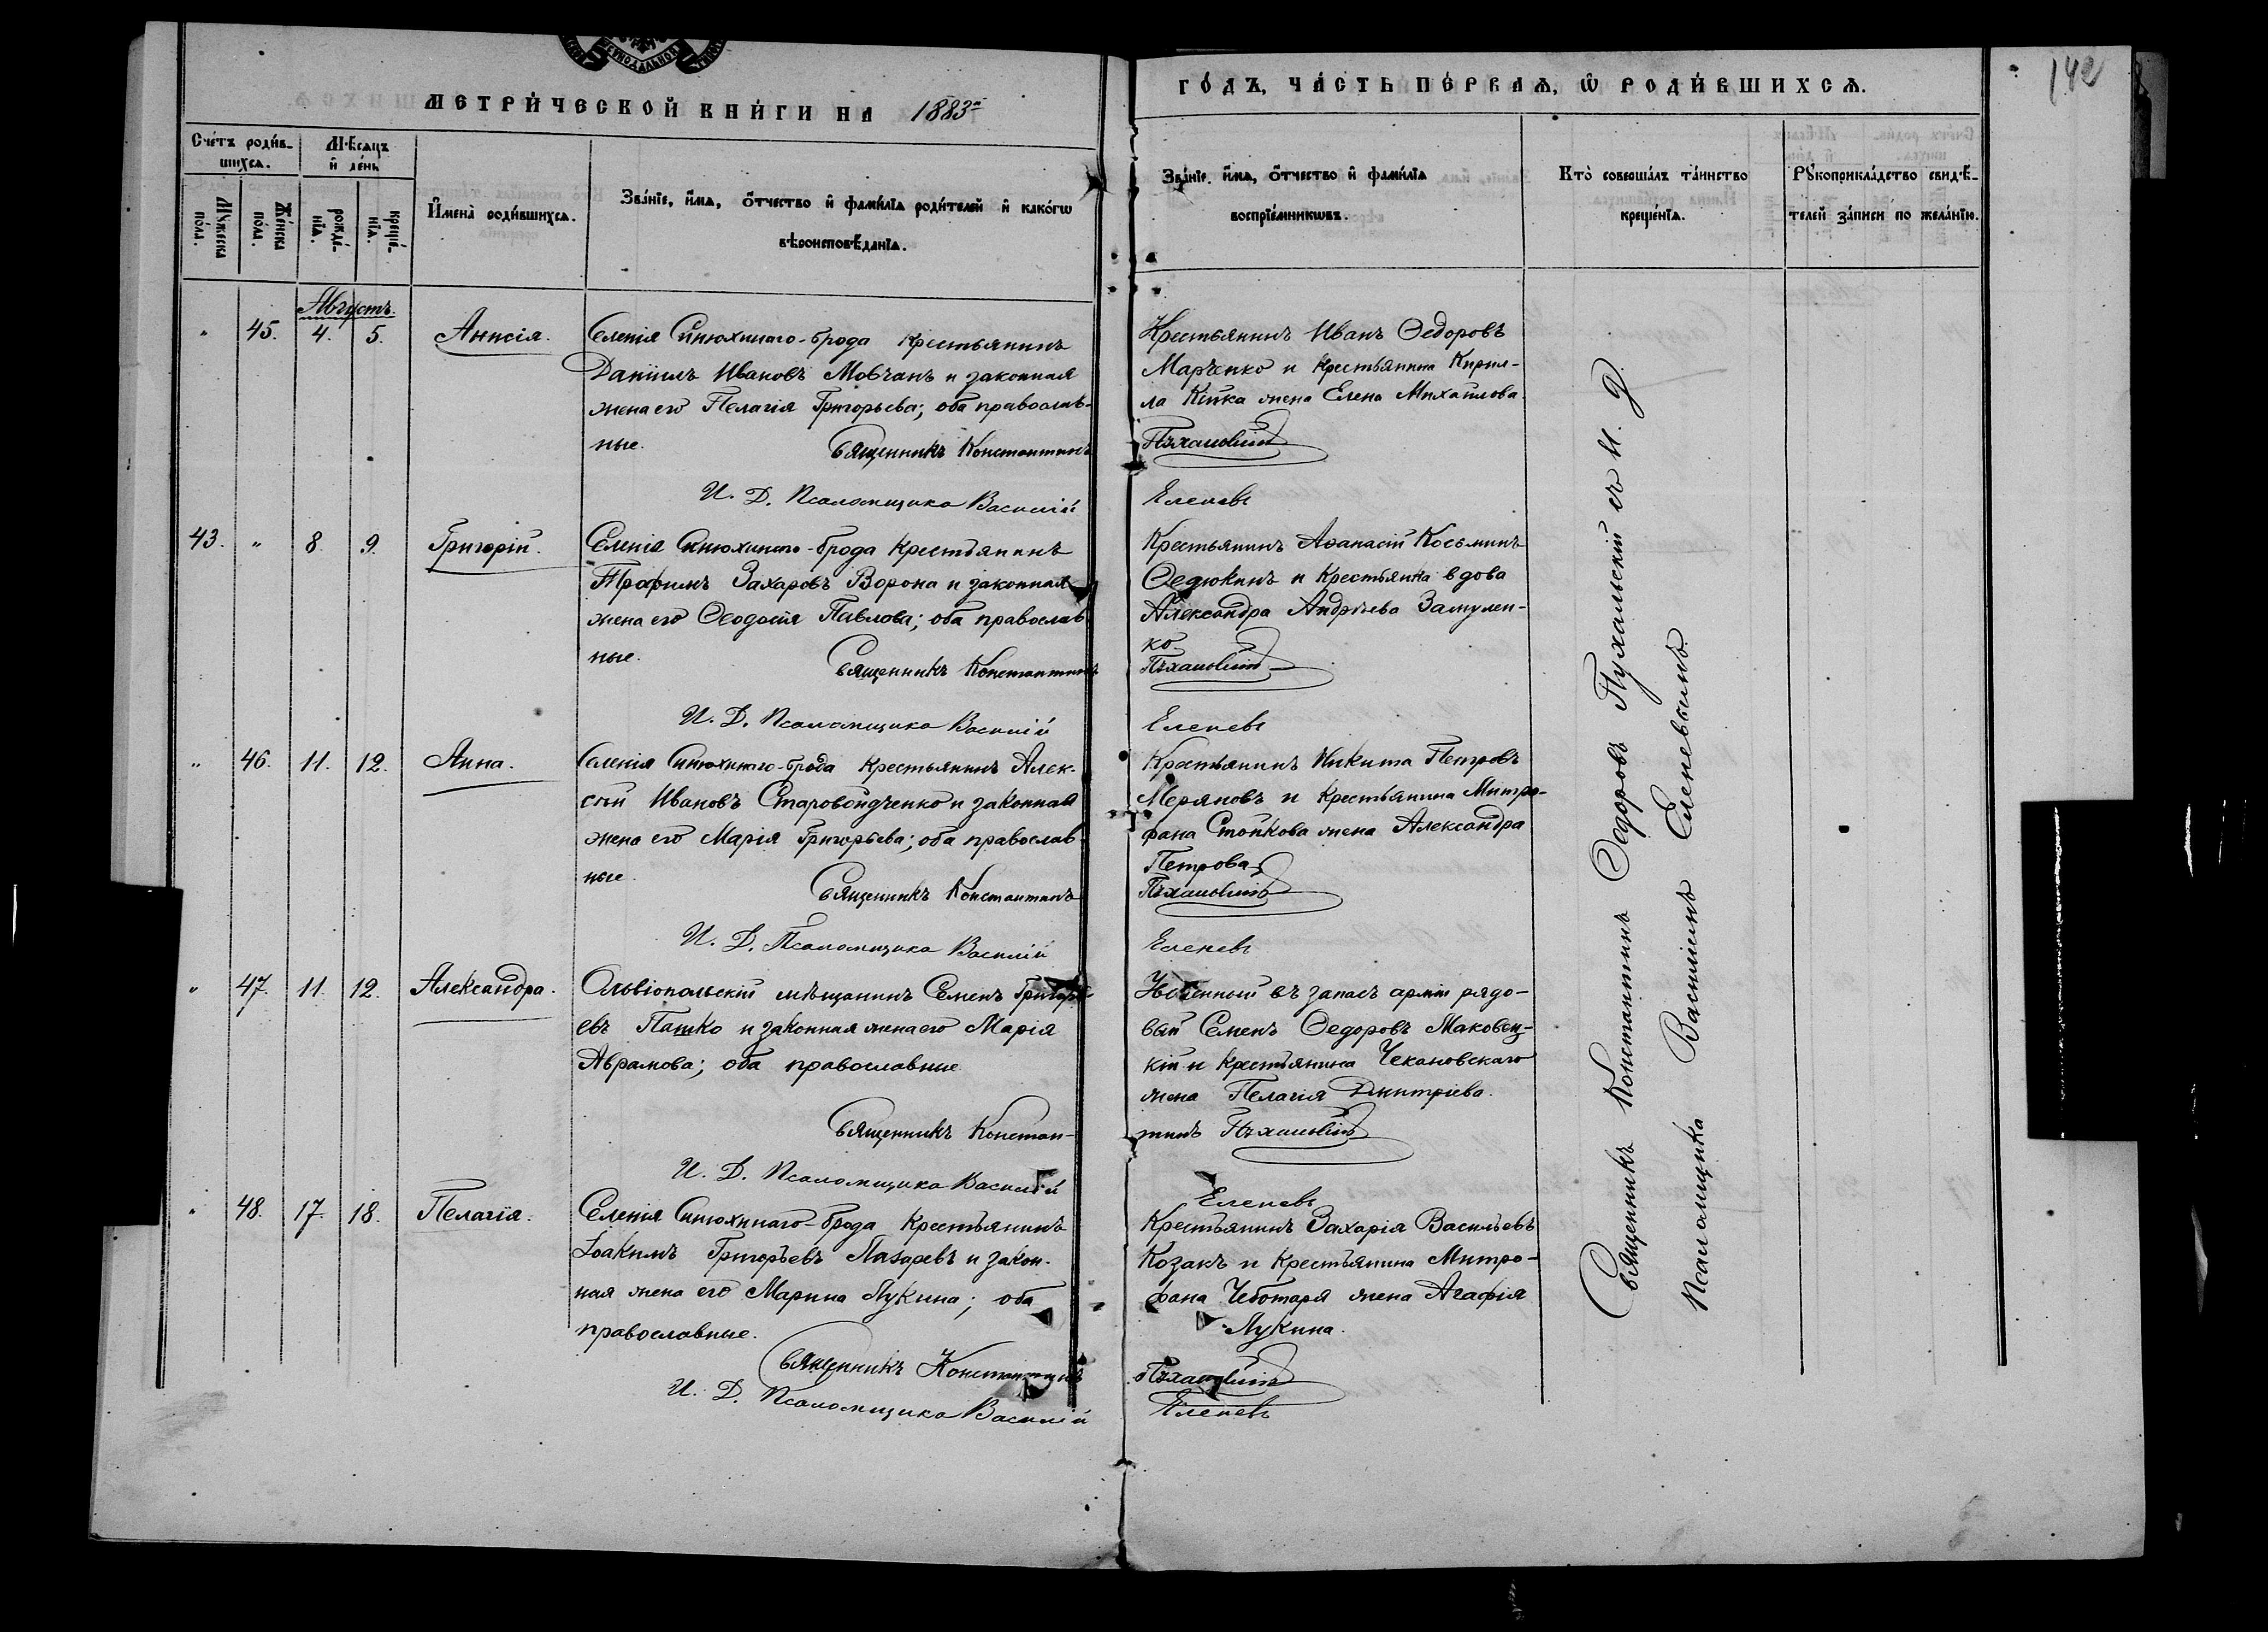 СИНОДАЛЬНОЙ
МЕТРИ́ЧЕСКОЙ КНИ́ГИ НА 1883й
ГО́ДЪ, ЧА́СТЬ ПЕ́РВАЯ, Ѡ҆ РОДИ́ВШИХСЯ.
142
Сче́тъ роди́в-
шихся.
Мꙋ́жеска по́ла.
Же́нска по́ла.
Мѣ́сяцъ
и҆ де́нь
рожде́-
нїя.
креще́-
нїя.
И҆мена̀ роди́вшихся.
Зва́нїе, и҆́мя, ѻ҆́тчество и҆ фами́лїа роди́телей и҆ како́гѡ
вѣроисповѣ́данїя.
Зва́нїе, и҆́мя, ѻ҆́тчество и҆ фами́лїа
воспрїе́мникѡвъ.
Кто̀ соверша́лъ та́инство
креще́нїя.
Рꙋкоприкла́дство свидѣ́-
телей за́писи по жела́нїю.
Августъ.
" 45. 4. 5. Анисія.
Селенія Синюхинаго-брода крестьянинъ
Даніилъ Ивановъ Мовчанъ и законная
жена его Пелагія Григорьева; оба православ-
ные.
Священникъ Константинъ
И. Д. Псаломщика Василій
Крестьянинъ Иванъ Ѳедоровъ
Марченко и крестьянина Кирил-
ла Кійка жена Елена Михайлова.
Пухальскій
Еленевъ
43. " 8. 9. Григорій.
Селенія Синюхинаго-брода крестьянинъ
Трофимъ Захаровъ Ворона и законная
жена его Ѳеодосія Павлова; оба православ
ные.
Священникъ Константинъ
И. Д. Псаломщика Василій
Крестьянинъ Аѳанасій Косьминъ
Ѳедюкинъ и крестьянка вдова
Александра Андрѣева Замулен-
ко
Пухальскій
Еленевъ
" 46. 11. 12. Анна.
Селенія Синюхинаго-брода крестьянинъ Алек-
сѣй Ивановъ Старовойдченко и законная
жена его Марія Григорьева; оба православ-
ные
Священникъ Константинъ
И. Д. Псаломщика Василій
Крестьянинъ Никита Петровъ
Меряновъ и крестьянина Митро-
фана Стойкова жена Александра
Петрова
Пухальскій
Еленевъ
" 47. 11. 12. Александра.
Ольвіопольскій мѣщанинъ Семенъ Григорь-
евъ Пашко и законная жена его Марія
Аврамова; оба православные
Священникъ Констан-
И. Д. Псаломщика Василій
Уволенный въ запасъ арміи рядо-
вый Семенъ Ѳедоровъ Маковец-
кій и крестьянина Чекановскаго
жена Пелагія Дмитріева.
тинъ Пухальскій
Еленевъ
" 48. 17. 18. Пелагія.
Селенія Синюхинаго-брода крестьянинъ
Іоакимъ Григорьевъ Лазаревъ и закон-
ная жена его Марина Лукина; оба
православные.
Священникъ Константинъ
И. Д. Псаломщика Василій
Крестьянинъ Захарія Васильевъ
Козакъ и крестьянина Митро-
фана Чеботаря жена Агафія
Лукина.
Пухальскій
Еленевъ
Священникъ Константинъ Ѳедоровъ Пухальскій съ И. Д.
Псаломщика Василіемъ Еленевымъ